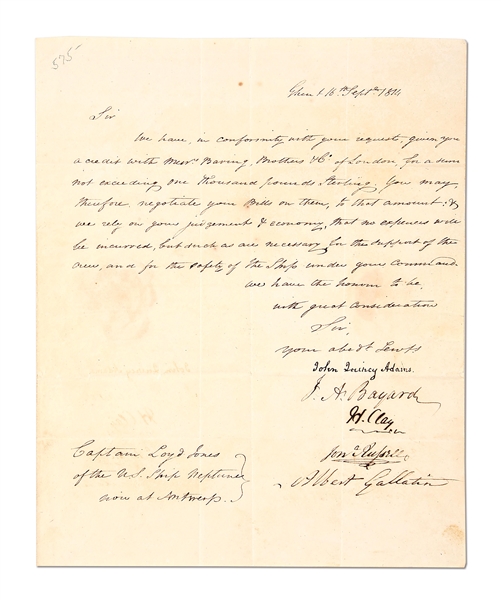 575
Ghent 16th Septr. 1814
Sir
We have, in conformity with your request, given you
a credit with Messrs. Baring, Brothers & Co. of London, for a sum
not exceeding one thousand pounds Sterling. You may
therefore negotiate your Bills on them, to that amount; &
we rely on your judgement & economy, that no expences will
be incurred, but such as are necessary for the support of the
crew, and for the safety of the Ship under your Command.
We have the honor to be,
with great consideration
Sir,
your obedt. Servts
John Quincy Adams.
J. A. Bayard
H. Clay
Jona. Russell
Albert Gallatin
Captain Loyd Jones
of the U.S. Ship Neptune
now at Antwerp.